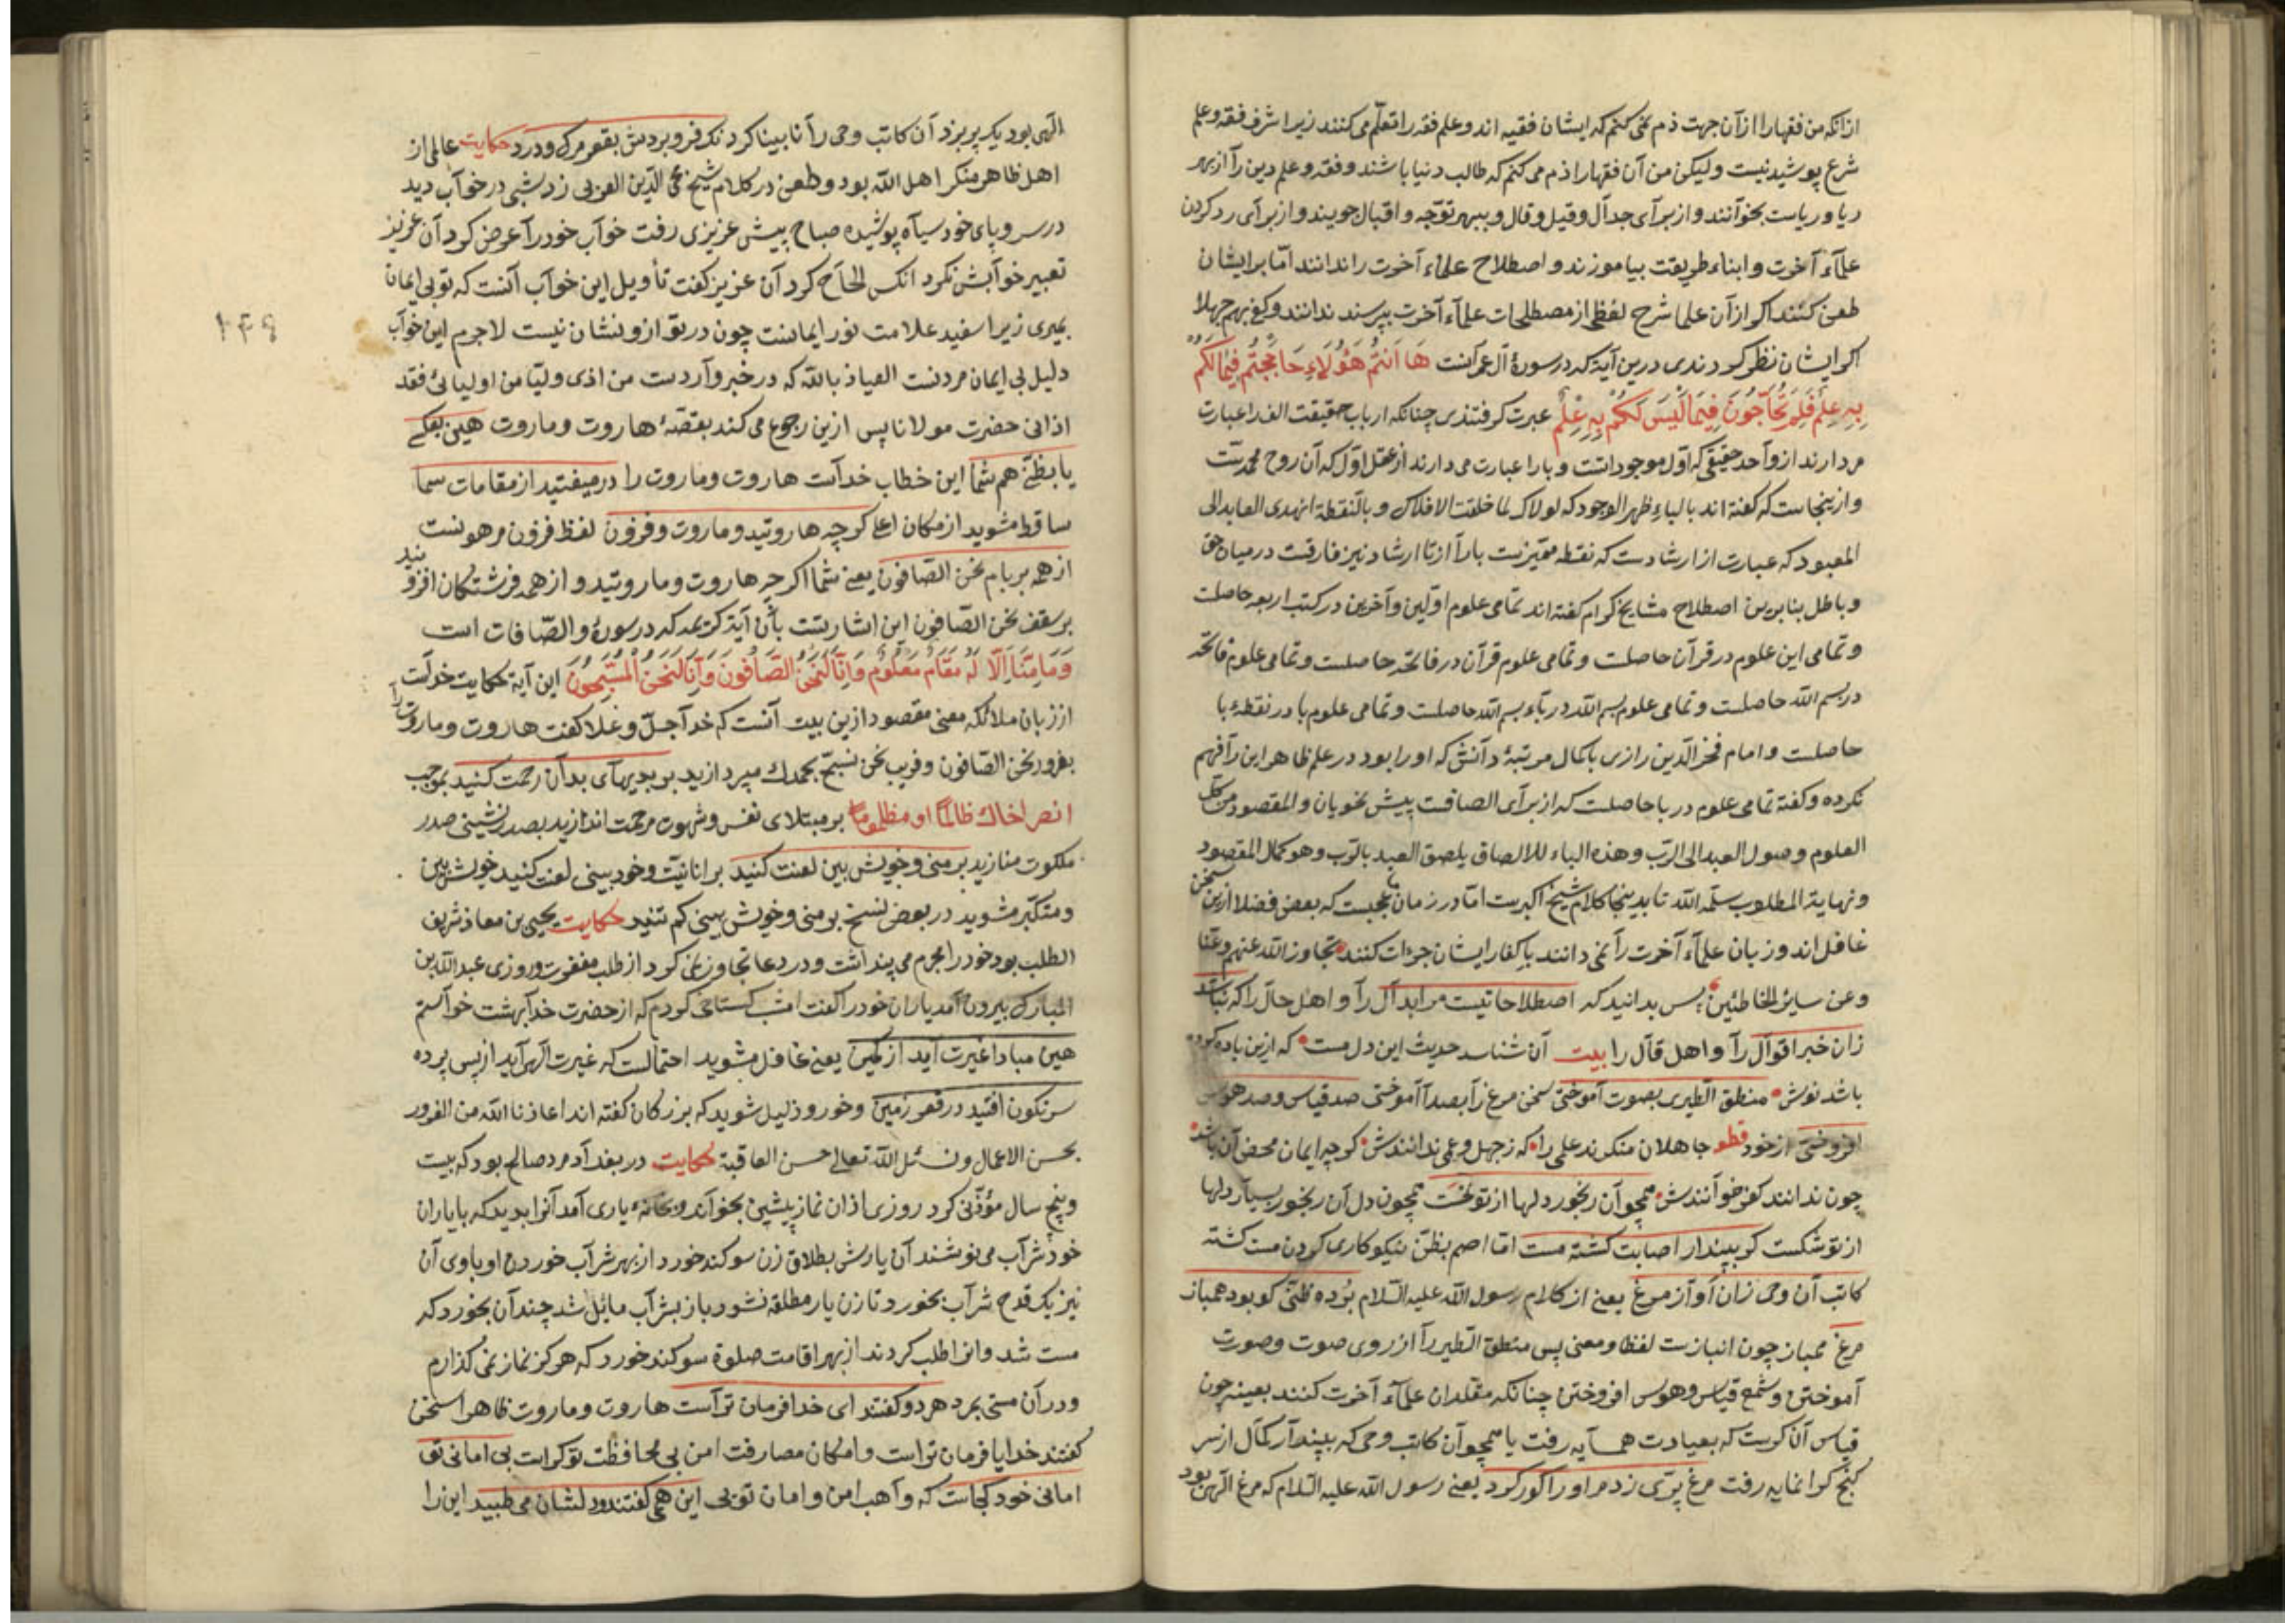 ازانکه من فقها را از آن جهت ذم نمی کنم که ایشان فقیه اند و علم فقه را تعلّم می کنند زیرا شرف فقه و علم
شرع پوشیده نیست ولیکن من آن فقها را ذم می کنم که طالب دنیا باشند و فقه و علم دین را از بهر
ریا و ریاست بخوانند و از برآی جدآل و قیل و قال و بهر توجّه و اقبال جویند و از برآی رد کردن
علمآء آخرت و ابناء طریقت بیاموزند و اصطلاح علماء آخرت را ندانند امّا بر ایشان
طعن کنند اکر از آن علما شرح لفظی از مصطلحات علمآء آخرت بپرسند ندانند و کفی بهم جهلا
اکر ایشان نظر کردندی درین آیة که در سورۀ آل عمرآنست هَا اَنتُم هَؤُلَاءِ حَاجَجتُم فِیمَا لَکُم
بِهِ عِلمٌ فَلِمَ تُحَآجُّونَ فِیمَا لَیسَ لَکُم بِهِ عِلمٌ عبرت کرفتندی چنانکه ارباب حقیقت الف را عبارت
می دارند از وآحد حقیقی که اوّل موجوداتست و با را عبارت می دارند از عقل اوّل که آن روح محمدیست
و ازینجاست که کفته اند بالباء ظهر الوجود که لولاک لما خلقت الافلاک و بالنقطة انهدی العابد الی
المعبود که عبارت از ارشادست که نقطه ممیّزست بارآ از تا ارشاد نیز فارقست در میان حق
و باطل بنا برین اصطلاح مشایخ کرام کفته اند تمامی علوم اوّلین و آخرین در کتب اربعه حاصلست
و تمامی این علوم در قرآن حاصلست و تمامی علوم قرآن در فاتحه حاصلست و تمامی علوم فاتحه
در بسم الله حاصلست و تمامی علوم بسم الله در باء بسم الله حاصلست و تمامی علوم با در نقطۀ با
حاصلست و امام فخر الدّین رازی با کمال مرتبۀ دآنش که او را بود در علم ظاهر این رآ فهم
نکرده و کفته تمامی علوم در با حاصلست که از برآی الصاقست پیش نحویان و المقصود من کل
العلوم وصول العبد الی الرّب و هذه الباء للالصاق یلصق العبد بالرّب و هو کمال المقصود
و نهایة المطلوب سلّمه الله تا بدینجا کلام شیخ اکبرست امّا در زمان ما عجبست که بعض فضلا ازین سخن
غافل اند و زبان علمآء آخرت رآ نمی دانند باکفار ایشان جرءات کنند تجاوز الله عنهم و عنّا
و عن سایر الخاطئین پس بدانید که اصطلاحاتیست مر ابدآل رآ و اهل حال را که نباشد
زان خبر اقوآل رآ و اهل قآل را بیت آن شناسد حدیث این دل مست که ازین باده کرده
باشد نوش منطق الطیری بصوت آموختی سخن مرغ رآ بصدآ آموختی صد قیاس و صد هوس
افروختی از خود قطو جاهلان منکرند علی را که ز جهل و عمی ندانندش کرچه ایمان محض آن باشد
چون ندانند کفر خوآنندش همچو آن رنجور دلها از تو خست همچون دل آن رنجور بسیار دلها
از تو شکست کر بپندار اصابت کشته مست امّا اصم بظنّ نیکو کاری کردن مست کشته
کاتب آن وحی زان آوآز مرغ یعنی از کلام رسول الله علیه السّلام بُرده ظنّی کو بود همباز
مرغ همباز چون انبازست لفظا و معنی پس منطق الطیر رآ از روی صوت و صورت
آموختن و شمع قیاس و هوس افروختن چنانکه مقلدان علمآء آخرت کنند بعینه چون
قیاس آن کرست که بعیادت همسآیه رفت یا همچو آن کاتب وحی که بپندآر کمآل از سر
کنج کرانمایه رفت مرغ پرّی زد مر او را کور کرد یعنی رسول الله علیه السّلام که مرغ الهی بود
الٓهی بود یک پر بزد آن کاتب وحی رآ نابینا کرد نک فرو بردش بقعر مرک و درد حکایت عالمی از
اهل ظاهر منکر اهل الله بود و طعن در کلام شیخ محی الدّین العربی زد شبی در خوآب دید
در سر و پای خود سیآه پوشیده صباح پیش عزیزی رفت خوآب خود رآ عرض کرد آن عزیز
تعبیر خوآبش نکرد انکس الحاح کرد آن عزیز کفت تأویل این خوآب آنست که تو بی ایمان
بمیری زیرا سفید علامت نور ایمانست چون در تو ازو نشان نیست لاجرم این خوآب
دلیل بی ایمان مردنست العیاذ بالله که در خبر وآردست من اذی ولیّا من اولیائی فقد
اذانی حضرت مولانا پس ازین رجوع می کند بقصّۀ هاروت و ماروت هین بعکسی
یا بظنّی هم شما این خطاب خدآست هاروت و ماروت را درمیفتید از مقامات سما
ساقط مشوید از مکان اعلی کرچه هاروتید و ماروت و فزون لفظ فزون مرهونست
از همه بر بام نحن الصّافون یعنی شما اکرچه هاروت و ماروتید و از همه فرشتکان افزونید
بر سقف نحن الصّافون این اشارتست بآن آیة کریمه که در سورۀ والصّافات است
وَمَا مِنَّا اِلَّا لَهُ مَقَامٌ مَعلُومٌ وَاِنَّا لَنَحنُ الصَّافُّونَ وَاِنَّا لَنَحنُ المُسَبِّحُونَ این آیة حکایت خدآست
از زبان ملائکه معنی مقصود ازین بیت آنست که خدآ جلّ و علا کفت هاروت و ماروت رآ
بغرور نحن الصّافون و فریب نحن نسبّح بحمدک مپردازید بر بدیهآی بدآن رحمت کنید بموجب
انصر اخاک ظالماً او مظلوماً بر مبتلای نفس و شهوت مرحمت اندازید بصدر نشینی صدر
ملکوت منازید بر منی و خویش بین لعنت کنید بر انانیّت و خود بینی لعنت کنید خویش بین
و متکبّر مشوید در بعض نسخ بر منی و خویش بینی کم تنید حکایت یحیی بن معاذ شریف
الطلب بود خود را مجرم می پنداشت و در دعا تجاوز نمی کرد از طلب مغفرت و روزی عبدالله بن
المبارک بیرون آمد یاران خود را کفت امشب کستاخی کردم که از حضرت خدآ بهشت خوآستم
هین مبادا غیرت آید از کمین یعنی غافل مشوید احتمالست که غیرت الٓهی آید از پس پرده
سرنکون افتید در قعر زمین و خور و ذلیل شوید که بزرکان کفته اند اعاذنا الله من الغرور
بحسن الاعمال و نسئل الله تعالی حسن العاقبة حکایت در بغدآد مرد صالح بود که بیست
و پنج سال مؤذّنی کرد روزی اذان نماز پیشین بخوآند و بخانۀ یاری آمد آنرا بدید که با یاران
خود شرآب می نوشند آن یارش بطلاق زن سوکند خورد از بهر شرآب خوردن او با وی آن
نیز یک قدح شرآب بخورد تا زن یار مطلقه نشود باز بشرآب مائل شد چندآن بخورد که
مست شد و انرا طلب کردند از بهر اقامت صلوة سوکند خورد که هرکز نماز نمی کذارم
و در آن مستی بمرد هر دو کفتند ای خدا فرمان ترآست هاروت و ماروت ظاهرا سخن
کفتند خدایا فرمان تراست و امکان مصارفت امن بی محافظت تو کراست بی امانی تو
امانی خود کجاست که وآهب امن و امان توبی این همی کفتند و دلشان می طپید این را
۲۴۹